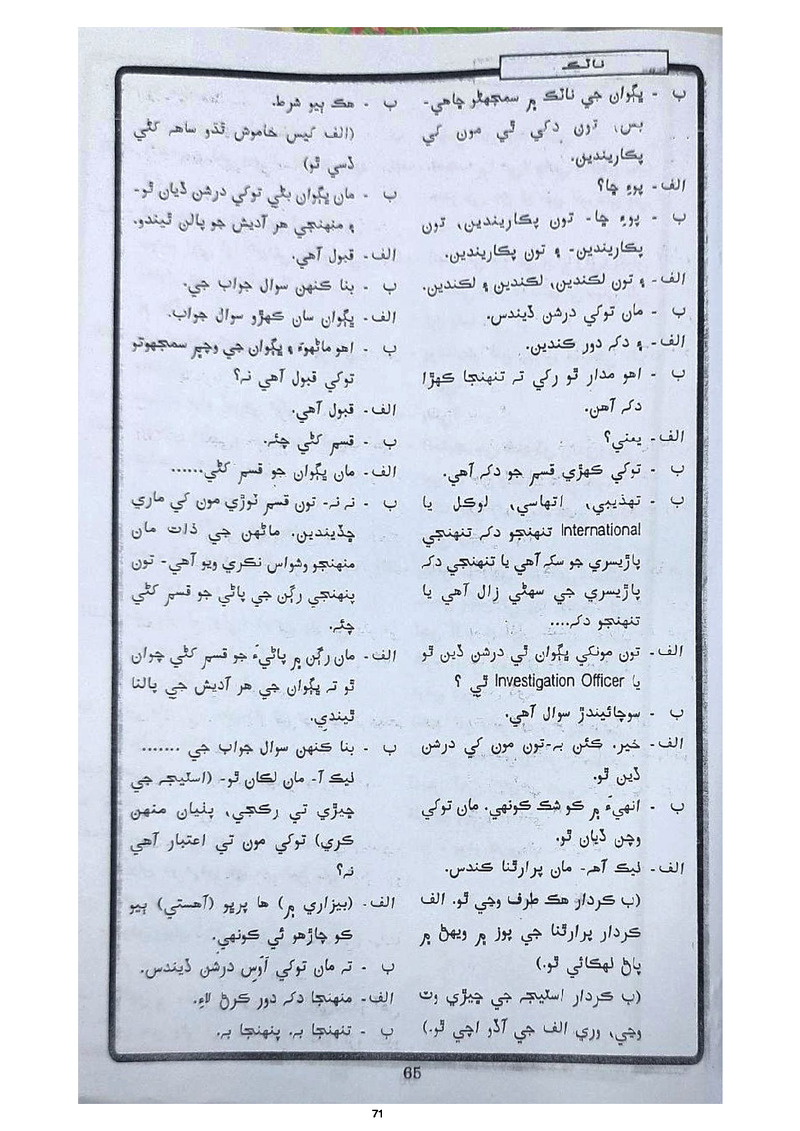 ناٽڪ
ب - ڀڳوان جي ناٽڪ ۾ سمجهڻو چاهي-
بس، تون دکي ٿي مون کي
پڪاريندين.
الف- پوءِ ڇا؟
ب - پوءِ ڇا- تون پڪاريندين، تون
پڪاريندين- ۽ تون پڪاريندين.
الف- ۽ تون لڪندين، لڪندين ۽ لڪندين.
ب - مان توکي درشن ڏيندس.
الف- ۽ دک دور ڪندين.
ب - اهو مدار ٿو رکي ته تنهنجا ڪهڙا
دک آهن.
الف- يعني؟
ب - توکي ڪهڙي قسم جو دک آهي.
ب - تهذيبي، اتهاسي، لوڪل يا
International تنهنجو دک تنهنجي
پاڙيسري جو سک آهي يا تنهنجي دک
پاڙيسري جي سهڻي زال آهي يا
تنهنجو دک....
الف- تون مونکي ڀڳوان ٿي درشن ڏين ٿو
يا Investigation Officer ٿي ؟
ب - سوچائيندڙ سوال آهي.
الف- خير. ڪئن به-تون مون کي درشن
ڏين ٿو.
ب - انهيءَ ۾ ڪو شڪ ڪونهي. مان توکي
وچن ڏيان ٿو.
الف- ليڪ آهه- مان پرارٿنا ڪندس.
(ب ڪردار هڪ طرف وڃي ٿو. الف
ڪردار پرارٿنا جي پوز ۾ ويهڻ ۾
پاڻ لهڪائي ٿو.)
(ب ڪردار اسٽيجه جي ڇيڙي وٽ
وڃي، وري الف جي آڏو اچي ٿو.)
ب - هڪ ٻيو شرط.
(الف کيس خاموش ٿڌو ساهه کڻي
ڏسي ٿو)
ب - مان ڀڳوان بڻي توکي درشن ڏيان ٿو-
۽ منهنجي هر آديش جو پالن ٿيندو.
الف- قبول آهي.
ب - بنا ڪنهن سوال جواب جي.
الف- ڀڳوان سان ڪهڙو سوال جواب.
ب - اهو ماڻهوءَ ۽ ڀڳوان جي وچ۾ سمجهوتو
توکي قبول آهي نه؟
الف- قبول آهي.
ب - قسم کڻي چئه.
الف- مان ڀڳوان جو قسم کڻي......
ب - نه نه- تون قسم ٽوڙي مون کي ماري
ڇڏيندين. ماڻهن جي ذات مان
منهنجو وشواس نڪري ويو آهي- تون
پنهنجي رڳن جي پاڻي جو قسم کڻي
چئه.
الف- مان رڳن ۾ پاڻيءَ جو قسم کڻي چوان
ٿو ته ڀڳوان جي هر آديش جي پالنا
ٿيندي.
ب - بنا ڪنهن سوال جواب جي .......
ليڪ آ- مان لڪان ٿو- (اسٽيجه جي
ڇيڙي تي رڪجي، پنيان منهن
ڪري) توکي مون تي اعتبار آهي
نه؟
الف- (بيزاري ۾) ها پريو (آهستي) ٻيو
ڪو چاڙهو ئي ڪونهي.
ب - ته مان توکي آوَسِ درشن ڏيندس.
الف- منهنجا دک دور ڪرڻ لاءِ.
ب - تنهنجا به. پنهنجا به.
65
71